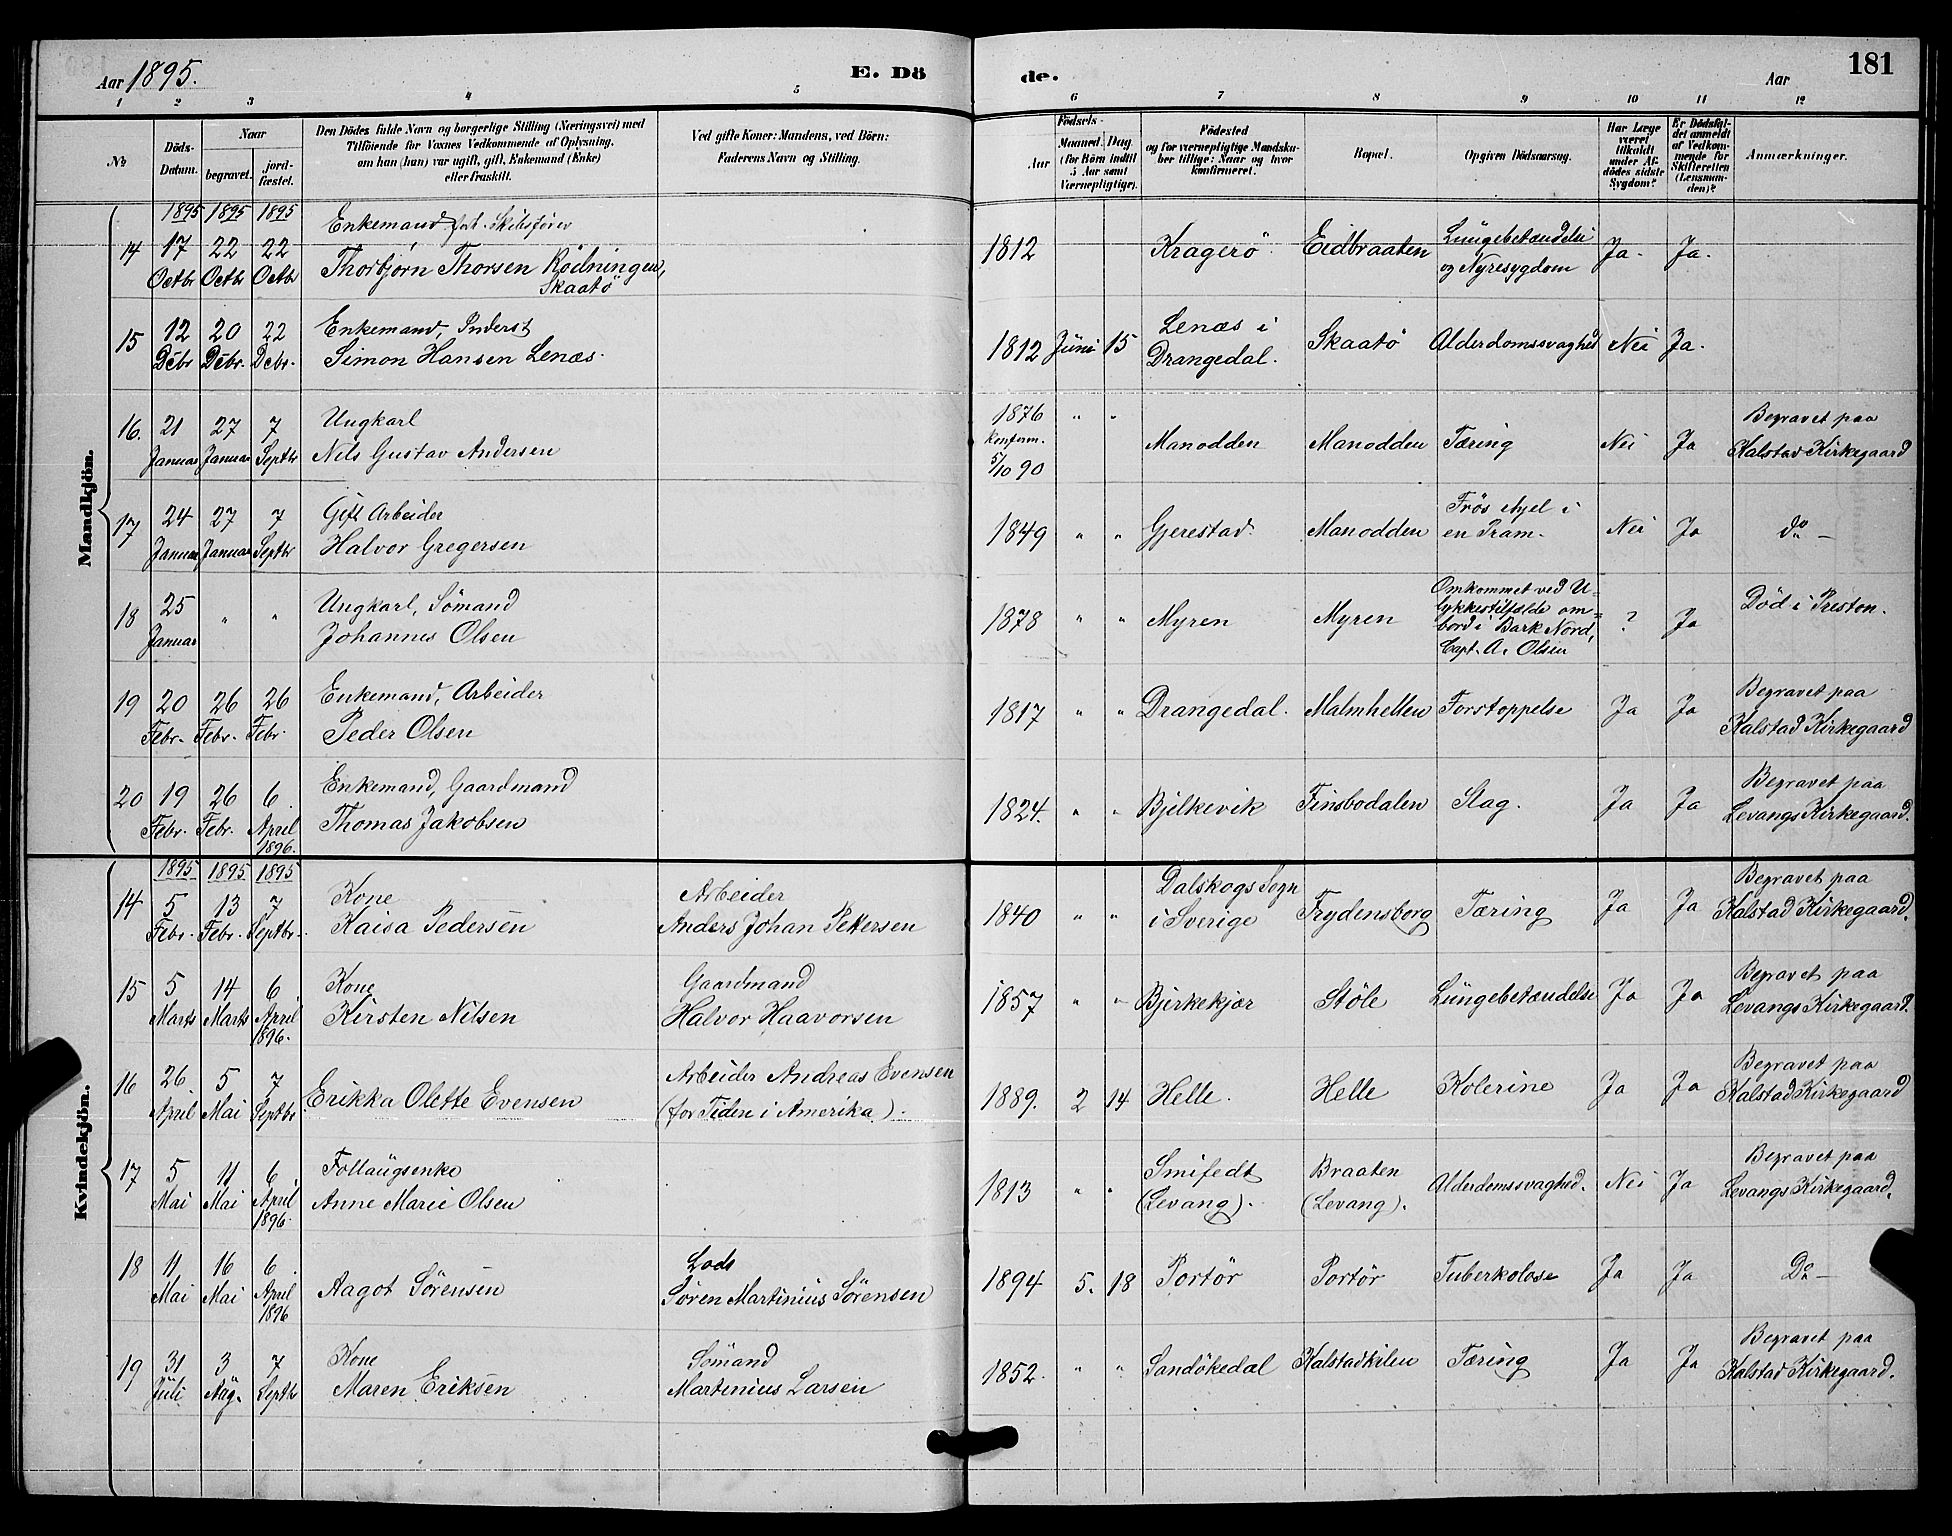 Aar 1895. E. Dö de. Aar 181
1 2 3 4 5 6 7 8 9 10 11 12
№
Döds-Datum.
Naar
begravet.
jord-fæstet.
Den Dödes fulde Navn og borgerlige Stilling (Næringsvei) med
Tilföiende for Voxnes Vedkommende af Oplysning,
om han (hun) var ugift, gift, Enkemand (Enke)
eller fraskilt.
Ved gifte Koner: Mandens, ved Börn:
Faderens Navn og Stilling.
Födsels-
Aar
Maaned. Dag
(for Börn indtil
5 Aar samt
Værnepligtige).
Födested
og for værnepligtige Mandska-
ber tillige: Naar og hvor
konfirmeret.
Bopæl.
Opgiven Dödsaarsag.
Har Læge
været
tilkaldt
under Af-
dödes sidste
Sygdom?
Er Dödsfal-
det anmeldt
af Vedkom-
mende for
Skifteretten
(Lensman-
den)?
Anmærkninger.
Mandkjön.
1895 1895 1895
Enkemand, Skibsfører Lungebetændelse
14 17 22 22 1812 Kragerö Eidbraaten Ja. Ja.
Octbr Octbr Octbr Thorbjørn Thorsen og Nyresygdom
Skaatö
15 12 20 22 Enkemand, Inderst Lenæs i
Debr Debr. Debr. Simon Hansen Lenæs. 1812 Juni 15 Drangedal. Skaatö Alderdomssvaghed Nei Ja.
16. 21 27 7 Ungkarl 1876 " " Begravet paa
Januar Januar Septbr Nils Gustav Andersen konferm. Manodden Manodden Tæring Nei Ja Kalstad Kirkegaard
5/10 90
17 24 27 7 Gift Arbeider Frös ihjel i
Januar Januar Septbr Halvor Gregersen 1849 " " Gjerestad. Manodden en Pram. Nei Ja do —
18 25 " " Ungkarl, Sömand Omkommet ved U-
Januar Johannes Olsen 1878 " " Myren Myren lykkestilfælde om-
bord i Bark Nord, ? Ja Död i Preston.
Capt. A. Olsen
19 20 26 26 Enkemand, Arbeider Begravet paa
Febr. Febr. Febr. Peder Olsen 1817 " " Drangedal. Malmhellen Forstoppelse Ja Ja Kalstad Kirkegaard
20 19 26 6 Enkemand, Gaardmand Begravet paa
Febr. Febr. April Thomas Jakobsen 1824. " " Bjelkevik Finsbodalen Slag. Ja Ja Levangs Kirkegaard.
1896.
Kvindekjön.
1895 1895 1895
14 5 13 7 Kone Arbeider Dalskogs Sogn Begravet paa
Febr. Febr. Septbr. Kaisa Pedersen Anders Johan Pettersen 1840 " " i Sverige Frydensborg Tæring Ja Ja Kalstad Kirkegaard.
15 5 14 6 Kone Gaardmand Begravet paa
Marts Marts April Kirsten Nilsen Halvor Haavorsen 1857 " " Bjerkekjær Stöle Lungebetændelse Ja Ja Levangs Kirkegaard.
1896.
16 26 5 7 Arbeider Andreas Evensen Begravet paa
April Mai Septbr Erikka Olette Evensen (for Tiden i Amerika). 1889. 2 14 Helle. Helle Kolerine Ja Ja Kalstad Kirkegaard
17 5 11 6 Smifedt Braaten Begravet paa
Mai Mai April Anne Marie Olsen 1813 " " (Levang). (Levang). Alderdomssvaghed. Nei Ja Levangs Kirkegaard.
1896.
18 11 16 6 Lods
Mai Mai April Aagot Sörensen Sören Martinius Sörensen 1894 5. 18 Portör Portör Tuberkolose Ja Ja Do —
1896
19 31 3 7 Kone Sömand Begravet paa
Juli Aug. Septbr Maren Eriksen Martinius Larsen 1852. " " Sandökedal Kalstadkilen Tæring Ja Ja Kalstad Kirkegaard.